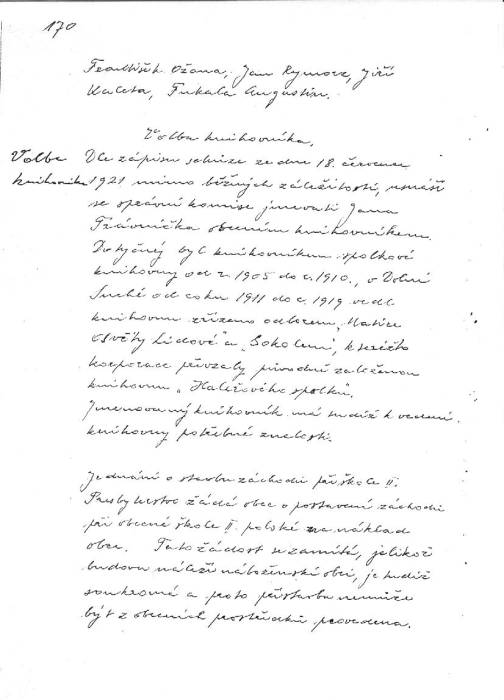 170
František Ožana, Jan Rymorz, Jiří
Kaleta, Fukala Augustin.
Volba knihovníka.
Volba
knihovníka
Dle zápisu schůze ze dne 18. července
1921 mimo běžných záležitostí, usnáší
se správní komise jmenovati Jana
Právníčka obecním knihovníkem.
Dotyčný byl knihovníkem spolkové
knihovny od r. 1905 do r. 1910, v Dolní
Suché od roku 1911 do r. 1919 vedl
knihovnu zřízenou odborem „Matice
Osvěty Lidové" a „Sokolem", kteréžto
korporace převzaly původně založenou
knihovnu „Haléřového spolku".
Jmenovaný knihovník má tudíž k vedení
knihovny potřebné znalosti.
Jednání o stavbu záchodů při škole II.
Presbyterstvo žádá obec o postavení záchodů
při obecné škole II. polské na náklad
obce. Tato žádost se zamítá, jelikož
budova náleží náboženské obci, je tudíž
soukromá a proto přístavba nemůže
být z obecních prostředků provedena.